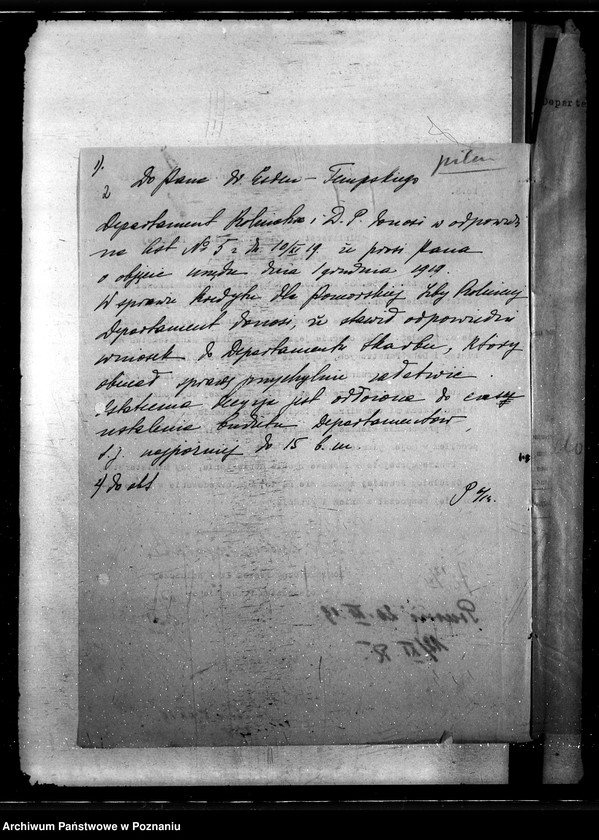 pilne
1).
2 Do Pana dr Esden-Tempskiego
Departament Rolnictwa i D. P donosi w odpowiedzi
na list No 5 z dn 10/XI 19 że prosi Pana
o objęcie urzędu dnia 1 grudnia 1919.
W sprawie kredytu dla Pomorskiej Izby Rolniczej
Departament donosi, iż stawił odpowiedni
wniosek do Departamentu Skarbu, który
obiecał sprawę przychylnie załatwić
Ostateczna decyzja jest odłożona do czasu
ustalenia budżetu Departamentów,
t. j. najpóźniej do 15 b. m
4) do akt
Departa
Archiwum Państwowe w Poznaniu